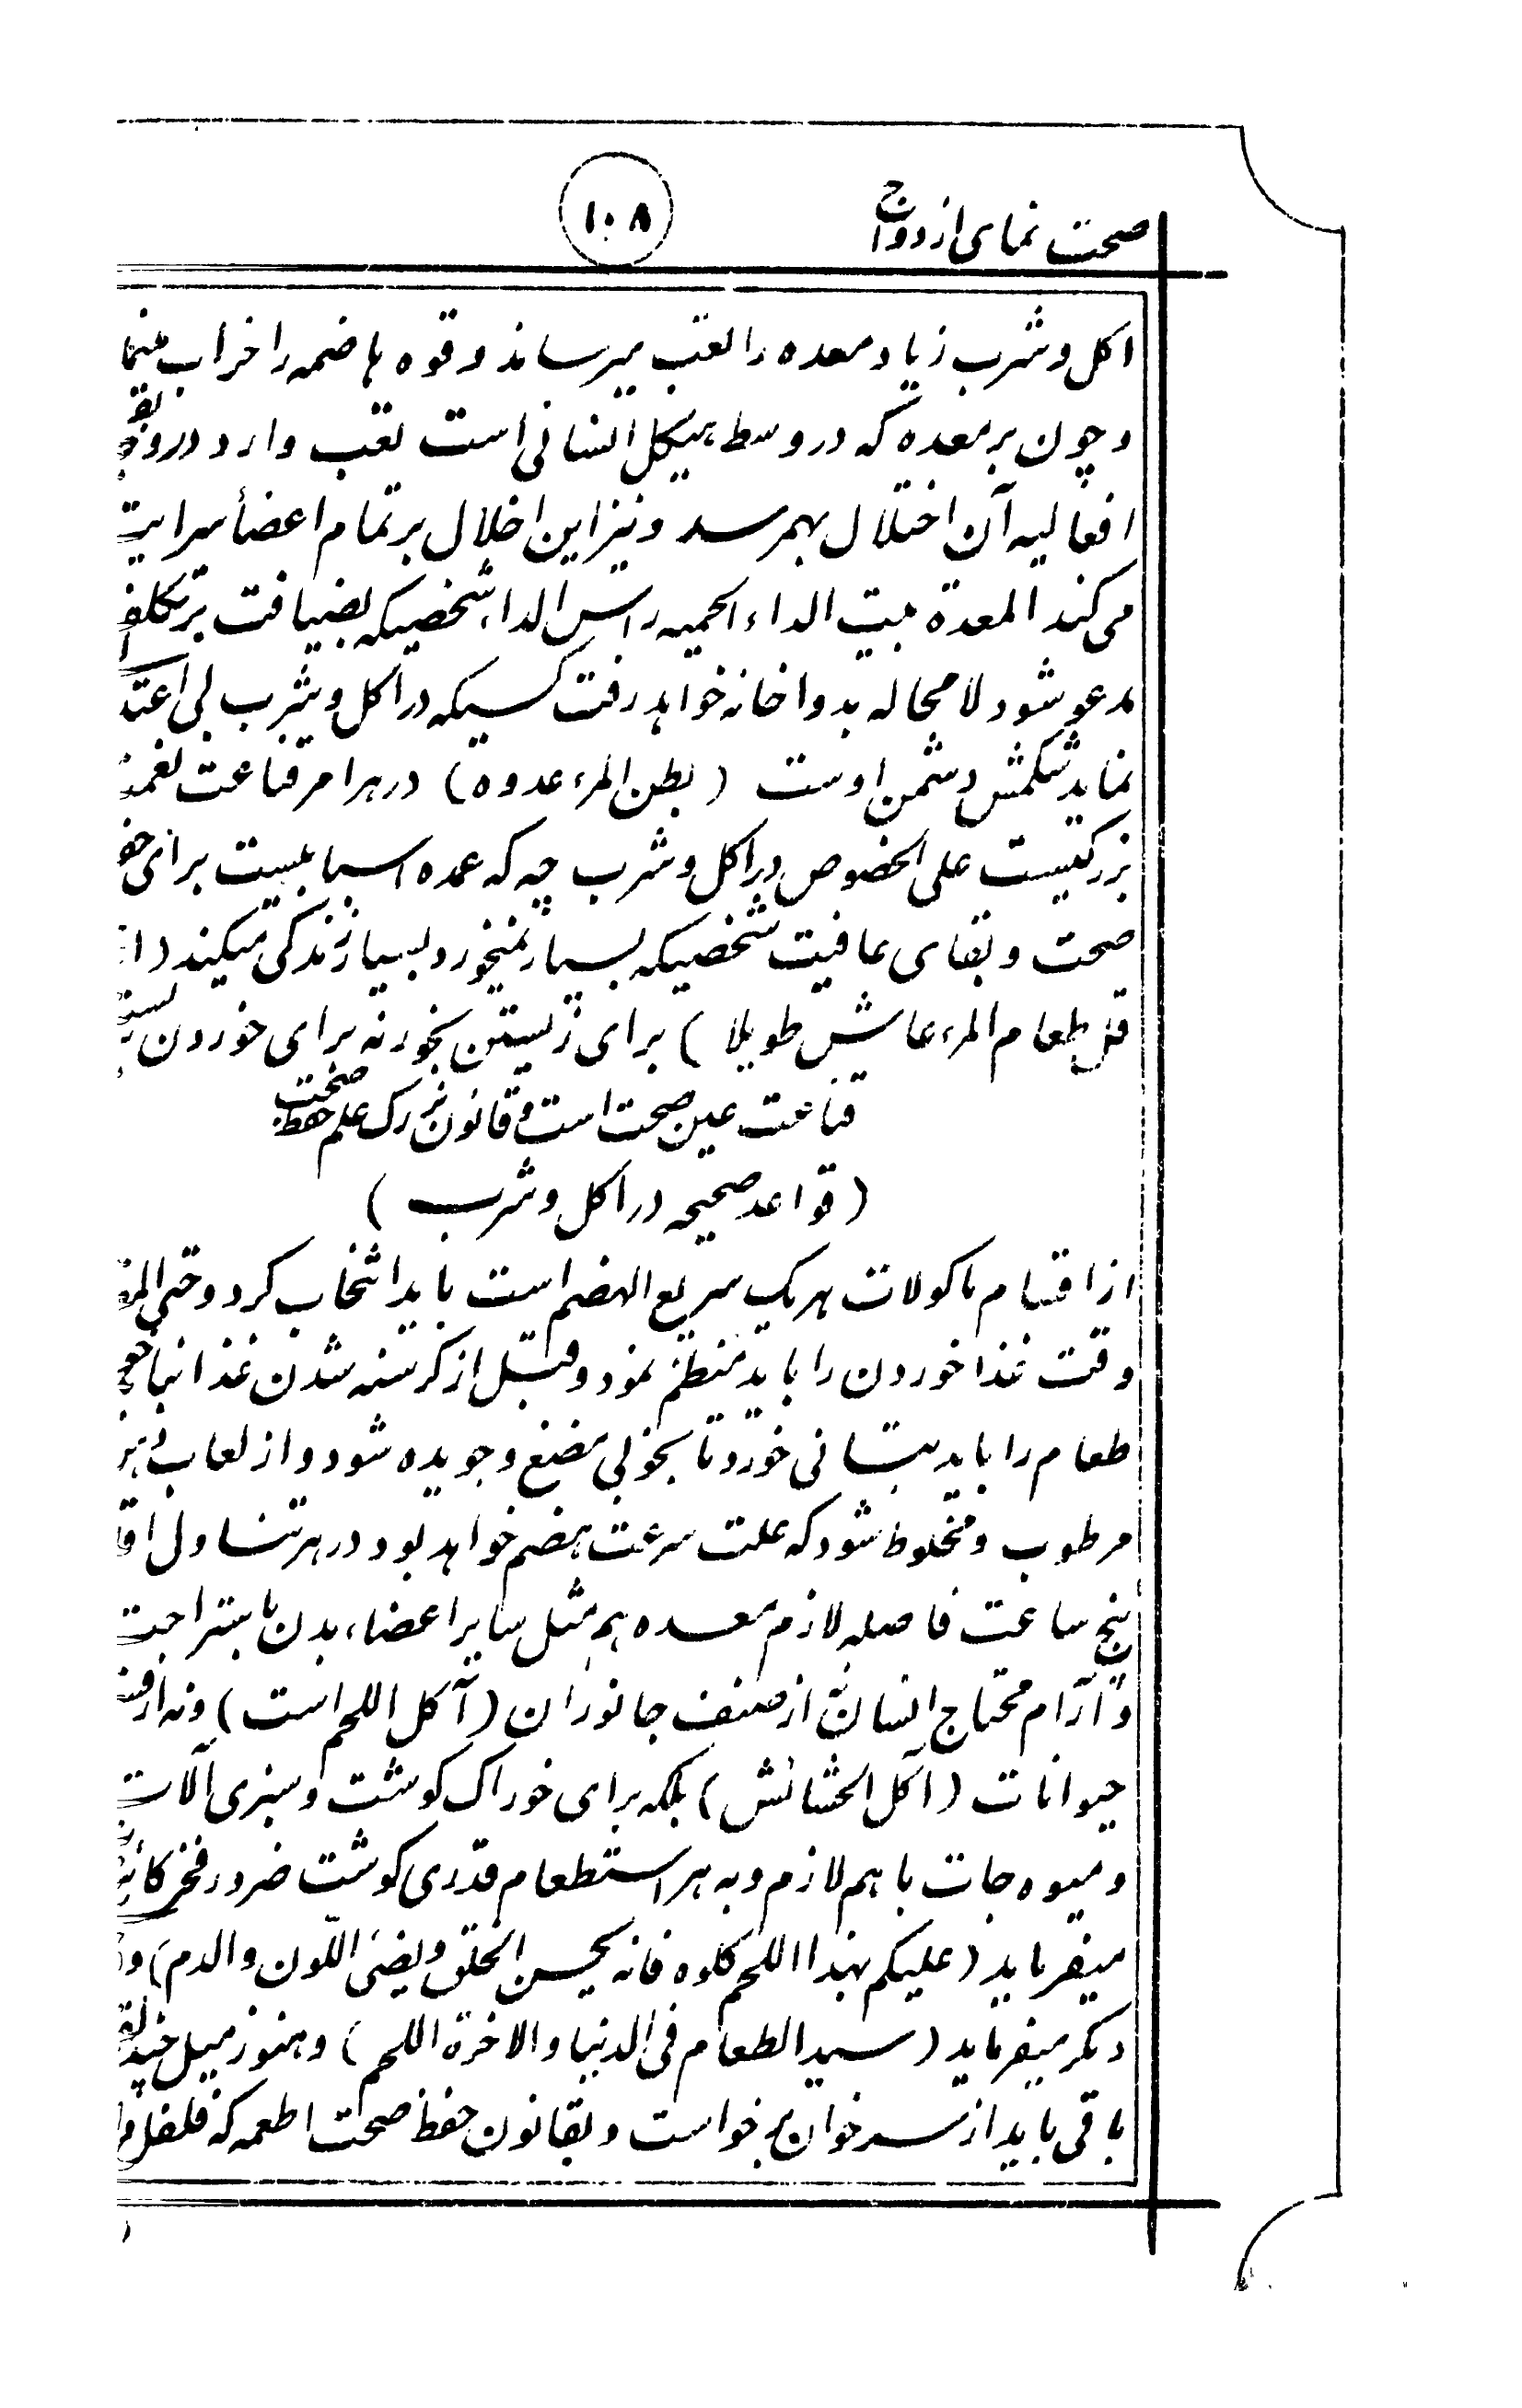 صحت نمای ازدواج
۱۰۸
اکل و شرب زیاد معده را تعب میرساند و قوه هاضمه را خراب مینما
و چون بر معده که در وسط هیکل انسانی است تعب وارد در
افعالیه آن اختلال بهمرسد و نیز این اخلال بر تمام اعضأ سرایت
می کند المعدة بیت الداء الحمیه راس الداء شخصیکه بضیافت پر تکلف
مدعو شود لا محاله بدواخانه خواهد رفت کسیکه در اکل و شرب بی اعتد
نماید شکمش دشمن اوست (بطن المرء عدوه) در هر امر قناعت نعمة
بزرکیست علی الخصوص در اکل و شرب چه که عمده اسبابیست برای حف
صحت و بقای عافیت شخصیکه بسیار نمیخورد بسیار زندکی میکند (ا
قل طعام المرء عاش طویلا) برای زیستن بخور نه برای خوردن
قناعت عین صحت است و قانون بزرک علم حفظ صحت
(قواعد صحیحه در اکل و شرب)
از اقسام ماکولات هریک سریع الهضم است باید انتخاب کرد و حتی المق
وقت غذا خوردن را باید منتظم نمود و قبل از کرسنه شدن غذا نباید
طعام را باید بتانی خورد تا بخوبی مضغ و جویده شود و از لعاب
مرطوب و مخلوط شود که علت سرعت هضم خواهد بود در هر تناول اقا
پنج ساعت فاصله لازم معده هم مثل سایر اعضاء بدن باستراحت
و آرام محتاج انسان از صنف جانوران (آکل اللحم است) و نه از
حیوانات (آکل الحشائش) بلکه برای خوراک کوشت و سبزی آلات
و میوه جات با هم لازم و به هر طعام قدری کوشت ضرور فخر کائ
میفرماید (علیکم بهذا اللحم کلوه فانه یحسن الخلق و یضئ اللون و الدم) و
دیکر میفرماید (سید الطعام فی الدنیا و الاخرة اللحم) و هنوز میل
باقی باید از سر خوان برخواست و بقانون حفظ صحت اطعمه که فلفل